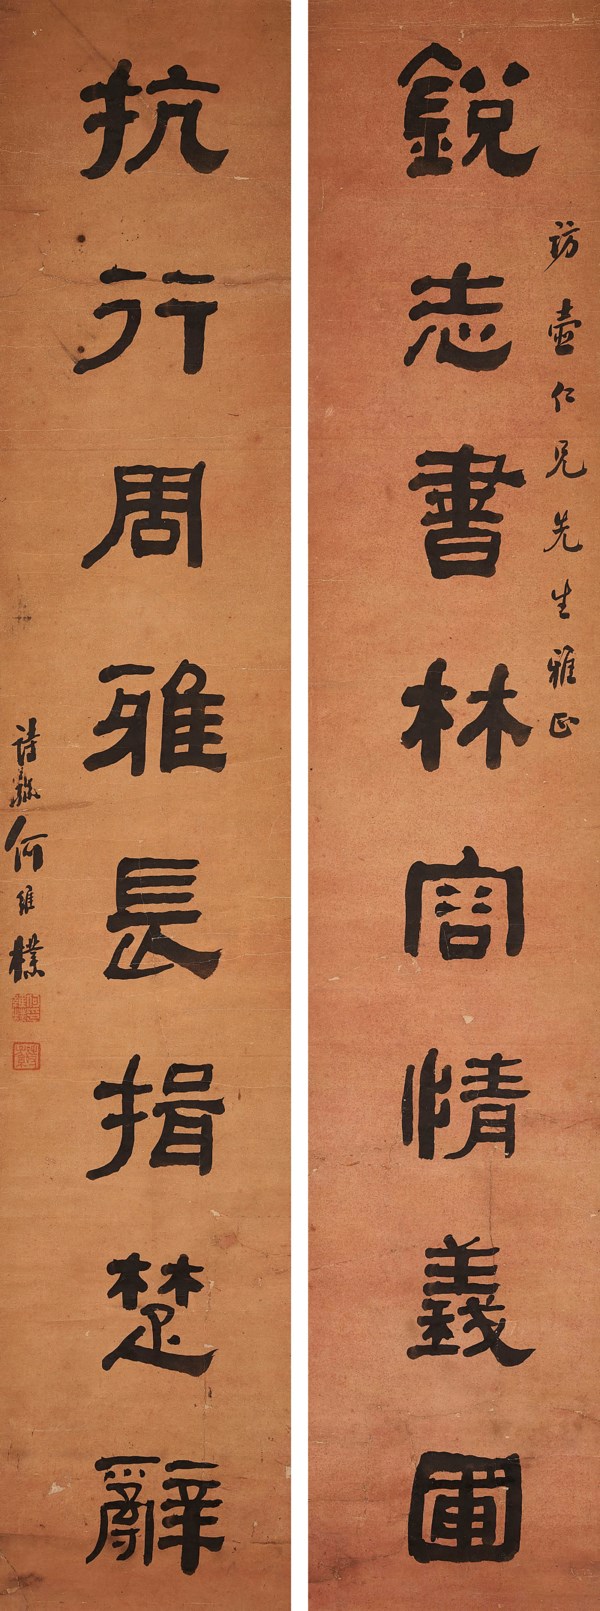 訪壺仁兄先生雅正
銳志書林容情義圃
抗行周雅長揖楚辭
詩孫何維樸